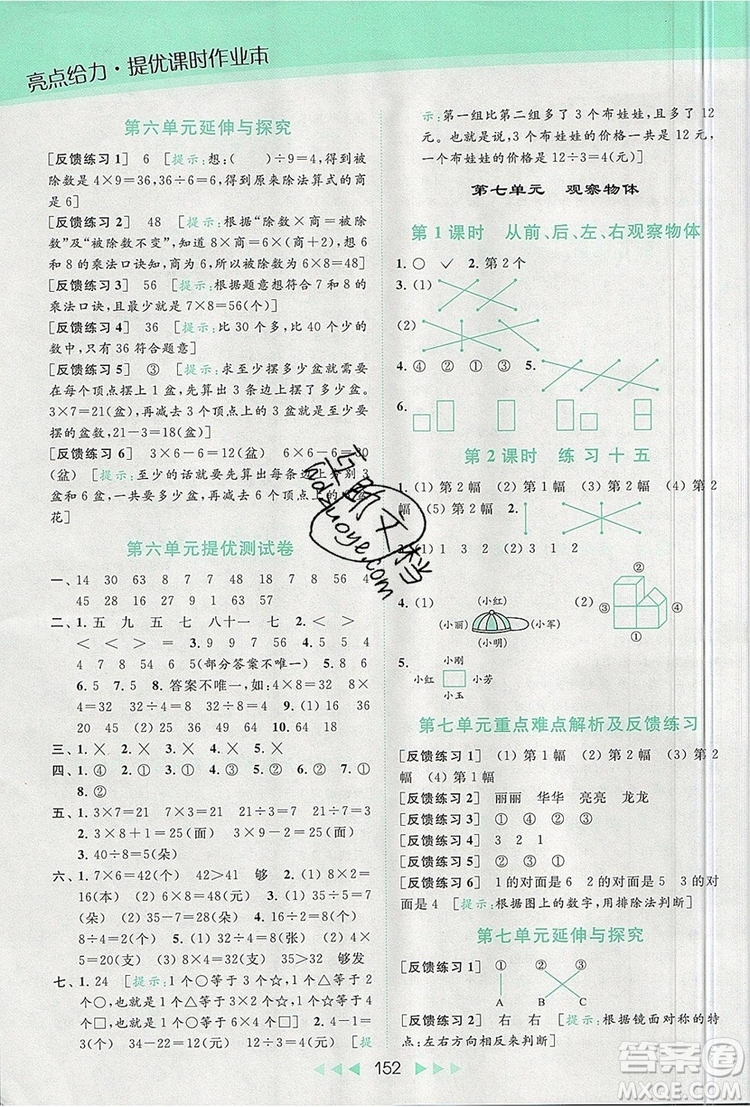 亮点给力·提优课时作业本
第六单元延伸与探究
[反馈练习1] 6 [提示：想：( )÷9=4，得到被
除数是4×9=36，得到原来除法算式的商
是6]
[反馈练习2] 48 [提示：根据“除数×商=被除
数”及“被除数不变”，知道8×商=6×(商+2)，想6
和8的乘法口诀知，商为6，所以被除数为6×8=48]
[反馈练习3] 56 [提示：根据题意想符合7和8的
乘法口诀，且最少就是7×8=56(个)]
[反馈练习4] 36 [提示：从比32多，比40少的
数中，只有36符合题意]
[反馈练习5] ③ [提示：求至少摆多少盆，需要
在每个顶点摆上1盆，先算出3条边上是多少盆，
3×7=21(盆)，再减去3个顶点上的3盆就是至少要
摆的盆数，21-3=18(盆)]
[反馈练习6] 3×6-6=12(盆) 6×6-6=30
(盆) [提示：至少的话就要每边上分别
盆，需要减去6个顶点上的
花]
第六单元提优测试卷
一、14 30 63 8 7 7 5 18 54 6 4
45 28 16 27 9 1 63 57
二、1.五 九 五 七 八十一 七 2.< < >
< < > = 3.4 5 4.5(部分答案不唯一) 5.8 6
6.5 5 7.5 8.答案不唯一，如8×4=32 8×
4=32 32÷8=4 32÷4=8 9.6×8=48
10.32 40 24 8 20 11.18 16 64 35
19
三、1.× 2.× 3.× 4.× 5.×
四、1.④ 2.① 3.② 4.② 5.② 6.① 7.①
8.②
五、1.3×7=21 7×3=21 21÷3=7 21÷7=3
2.3×8+1=25(面) 3×9-2=25(面)
3.40÷8=5(朵)
六、1.7×6=42(元) 42>41 够 2.(1)8×2=
16(本) (2)6×8=48(元) 3.(1)28÷4=7
(朵) (2)35-28=7(朵) 27÷9=3(朵)
8÷4=2(朵) 4.(1)4×8=32(张) (2)4×6-
4=20(支) 5×4=20(支) 33>32 够发
七、1.24 [提示：1个○等于3个☆，2个○等于2
个3，也就是6个☆，1个△等于2个○，1个△等于
6个☆，1个□等于4个△，1个□就等于4个6
个☆，就是24个☆，1个□=24个☆] 2.4-1=3
(个) 4-1=3(个) 12÷3=4(元) [提
示：第一组比第二组多了3个布娃娃，多12
元，也就是3个布娃娃的价格一共是12元，一
个布娃娃的价格是12÷3=4(元)]
第七单元 观察物体
第1课时 从前、后、左、右观察物体
1.○ ✓ 2.第2个
3.(1)
(2)
4.④ ② ① ③ 5.
6.
第2课时 练习十五
1.(1)第2幅 (2)第1幅 (3)第2幅 (4)第2
幅 (5)第2幅 2.
3 1 2 ④ ① ② ③
4.(1) (小红) (小丽) (小军) (小明) (2) ① ② ③ ④
5. 小刚
小红 小芳
小玉
第七单元重点难点解析及反馈练习
[反馈练习1] (1)第1幅 (2)第1幅
[反馈练习2] 丽丽 华华 亮亮 龙龙
[反馈练习3] ① ④ ② ③
[反馈练习4] 3 2 1
[反馈练习5] ③ ② ① ④
[反馈练习6] 1的对面是6 2的对面是5 3的对
面是4 [提示：根据图上的数字，用排除法判断]
第七单元延伸与探究
[反馈练习1] ① ② ③
A B C
[反馈练习2] 右 右 [提示：根据镜面对称的特
点：左右方向相反来判断]
152
互助文档
hdzuoye.com
答案卷
MXQE.COM